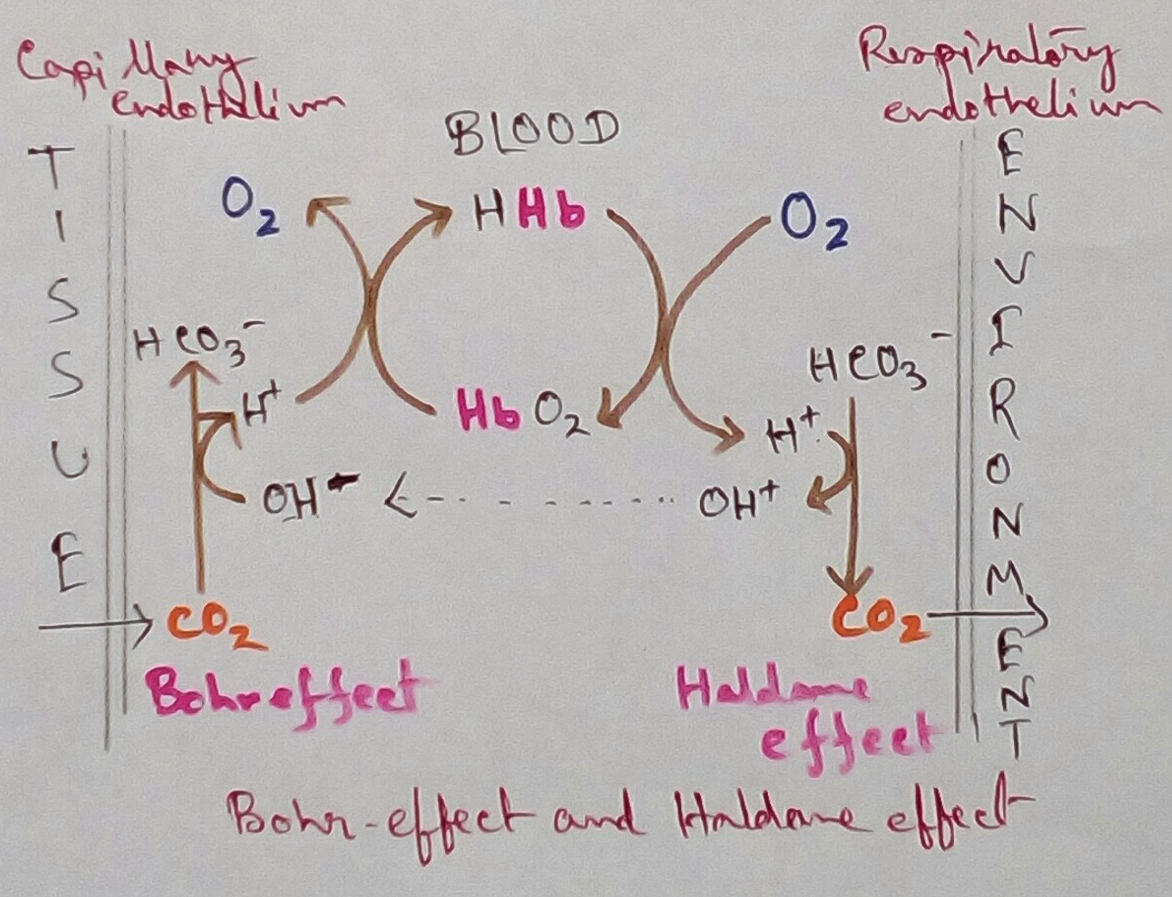 Capillary
endothelium
Respiratory
endothelium
BLOOD
TISSUE
ENVIRONMENT
O2
HHb
O2
HCO3-
HCO3-
H+
HbO2
H+
OH-
OH+
CO2
CO2
Bohr effect
Haldane
effect
Bohr-effect and Haldane effect